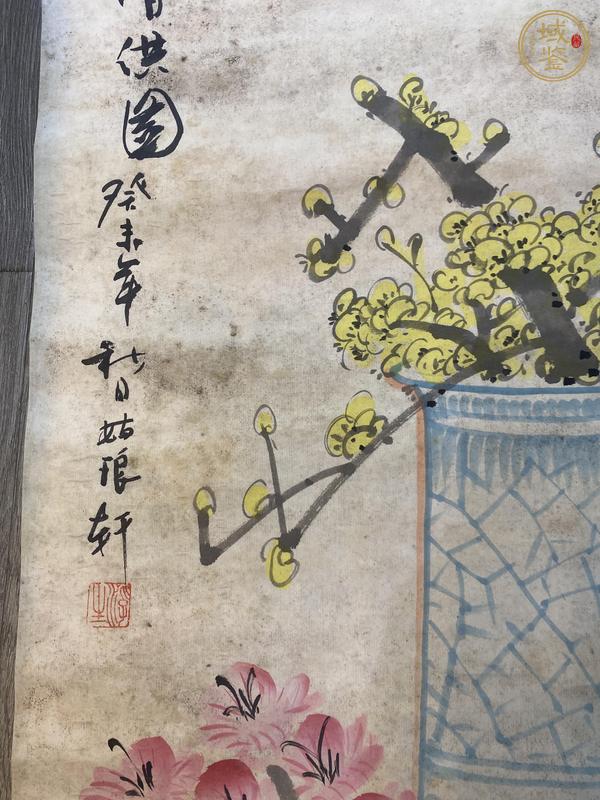 供圖
癸未年
秋日姑琅
軒
域鉴